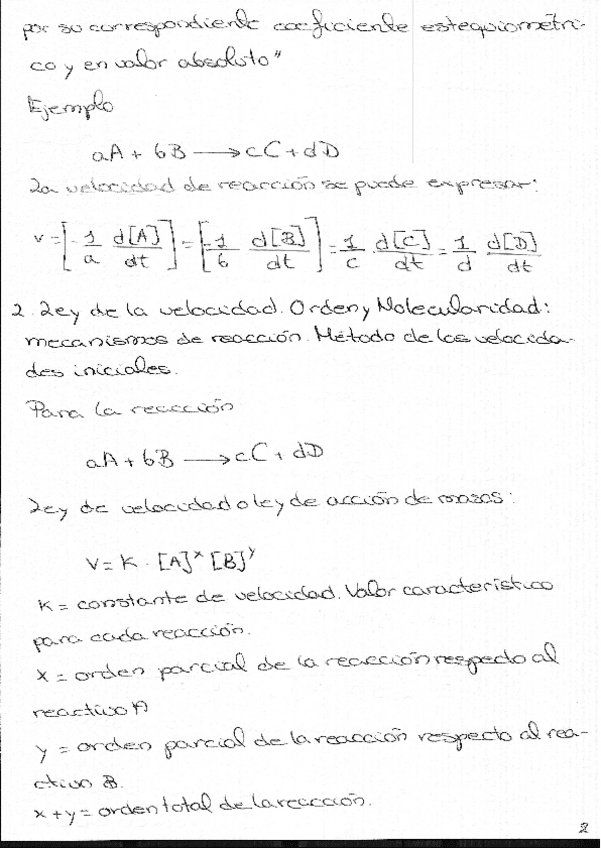 por su correspondiente coeficiente estequiométri-
co y en valor absoluto"
Ejemplo
aA + bB ⟶ cC + dD
La velocidad de reacción se puede expresar:
v = [-1/a d[A]/dt] = [-1/b d[B]/dt] = 1/c · d[C]/dt = 1/d d[D]/dt
2. Ley de la velocidad. Orden y Molecularidad:
mecanismos de reacción. Método de las velocida-
des iniciales.
Para la reacción
aA + bB ⟶ cC + dD
Ley de velocidad o ley de acción de masas:
V = K · [A]ˣ [B]ʸ
K = constante de velocidad. Valor característico
para cada reacción.
x = orden parcial de la reacción respecto al
reactivo A
y = orden parcial de la reacción respecto al rea-
ctivo B.
x + y = orden total de la reacción.
2